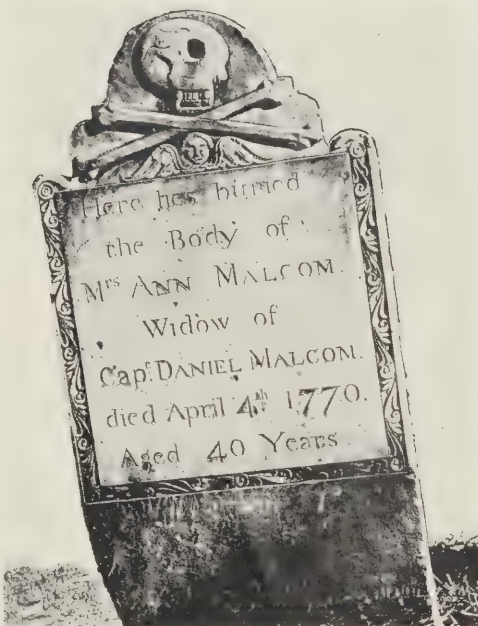 Here lies buried
the Body of
Mrs ANN MALCOM.
Widow of
Capt DANIEL MALCOM.
died April 4th 1770.
Aged 40 Years